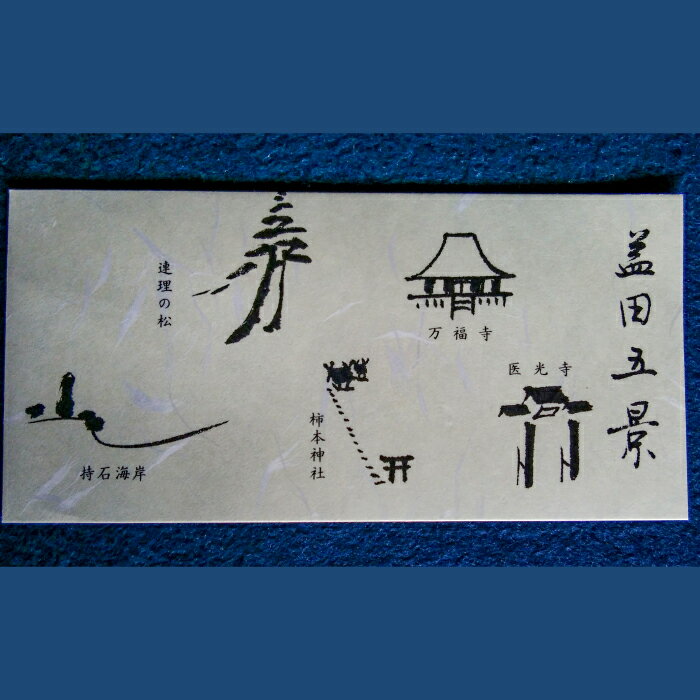 益田五景
万福寺
医光寺
連理の松
柿本神社
持石海岸